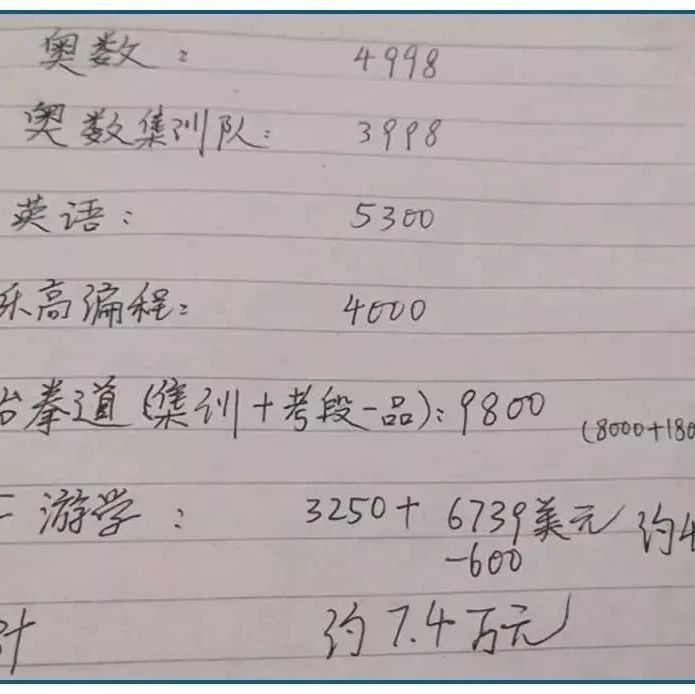 奥数： 4998
奥数集训队： 3998
英语： 5300
乐高编程： 4000
跆拳道（集训+考段一品）：9800 （8000+180
游学： 3250+ 6739美元 约4
-600
计 约7.4万元